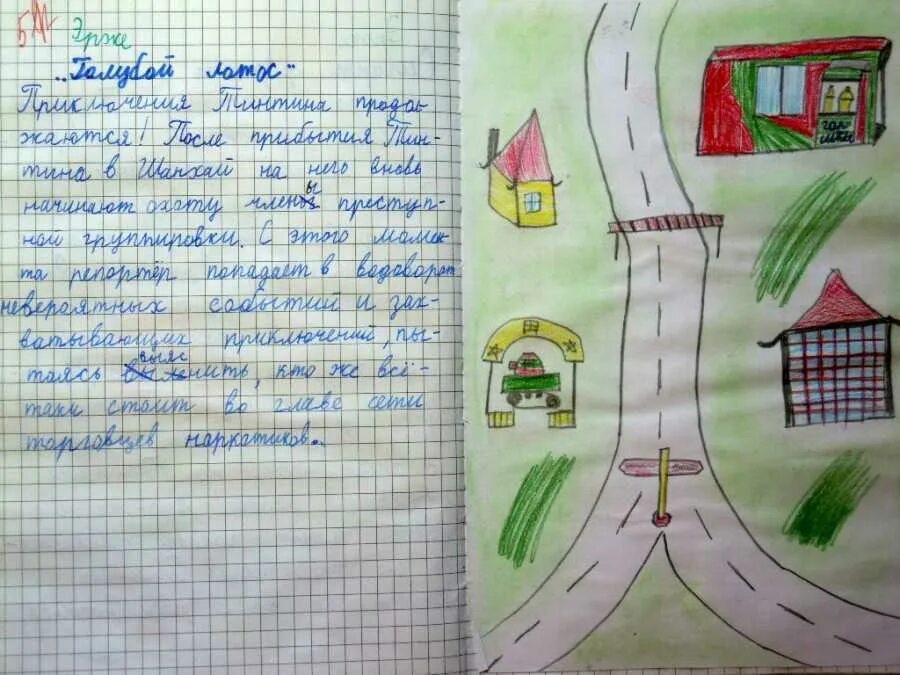 5
Эрже
"Голубой лотос"
Приключения Тинтина продол
жаются! После прибытия Тин-
тина в Шанхай на него вновь
начинают охоту члены преступ-
ной группировки. С этого момен
та репортёр попадает в водоворот
невероятных событий и зах-
ватывающих приключений, пы-
таясь выяснить, кто же всё-
таки стоит во главе сети
торговцев наркотиков..